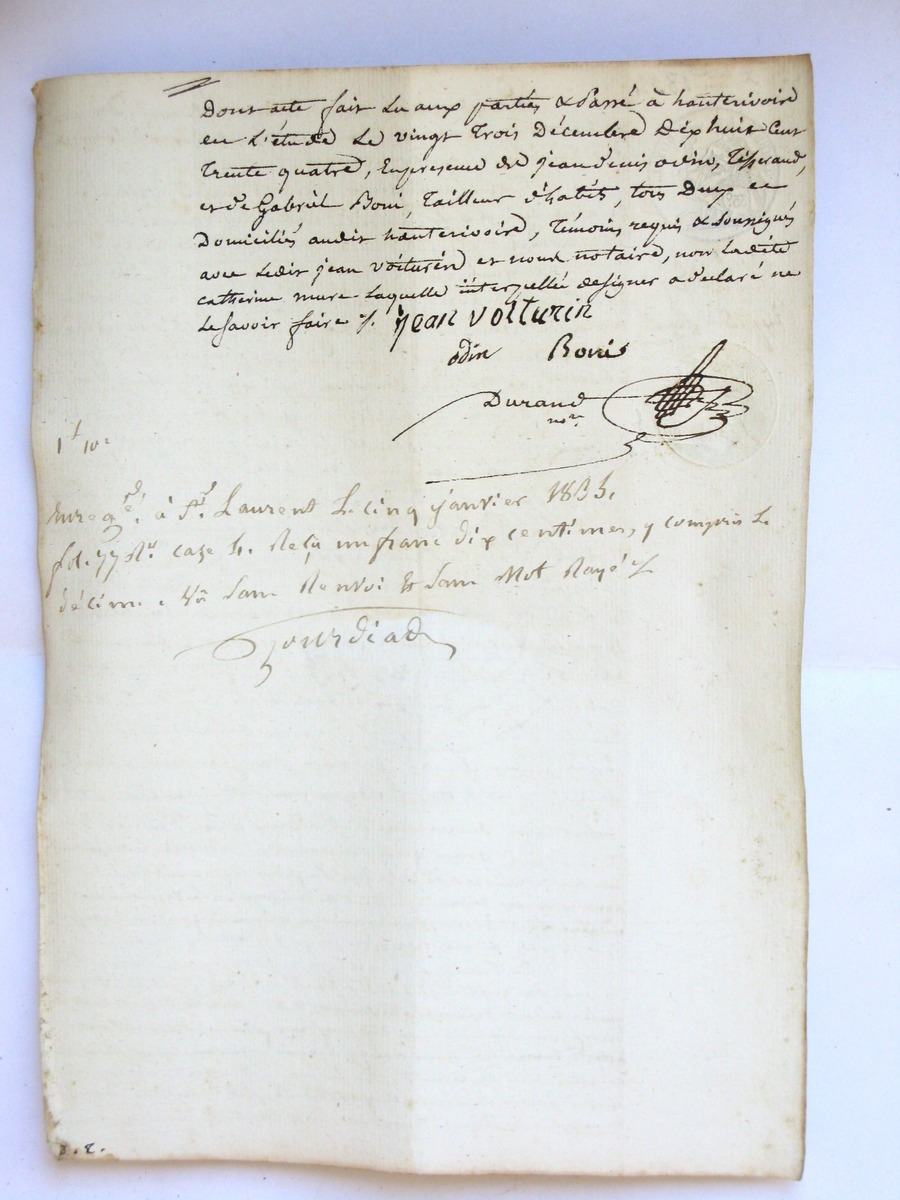 Dont acte fait lu aux parties & Passé à hauterivoire
en L'étude Le vingt Trois Décembre Dix huit Cent
Trente quatre, En presence de jean denis odin, Tisserand,
et de Gabriel Boni, Tailleur d'habits, tous Deux
Domiciliés audit hauterivoire, Témoins requis & soussignés
avec Ledit jean voiturin et nous notaire, non Ladite
catherine mure Laquelle interpellée de signer a declaré ne
Le savoir faire ./.
jean voiturin
odin Bonis
Durand
nore
1f 10c
Enregé. à St. Laurent Le cinq janvier 1835.
fol. 77 Ro. case 4. Reçu un franc dix centimes, y compris Le
décime. Sans Renvoi & Sans Mot Rayé ./.